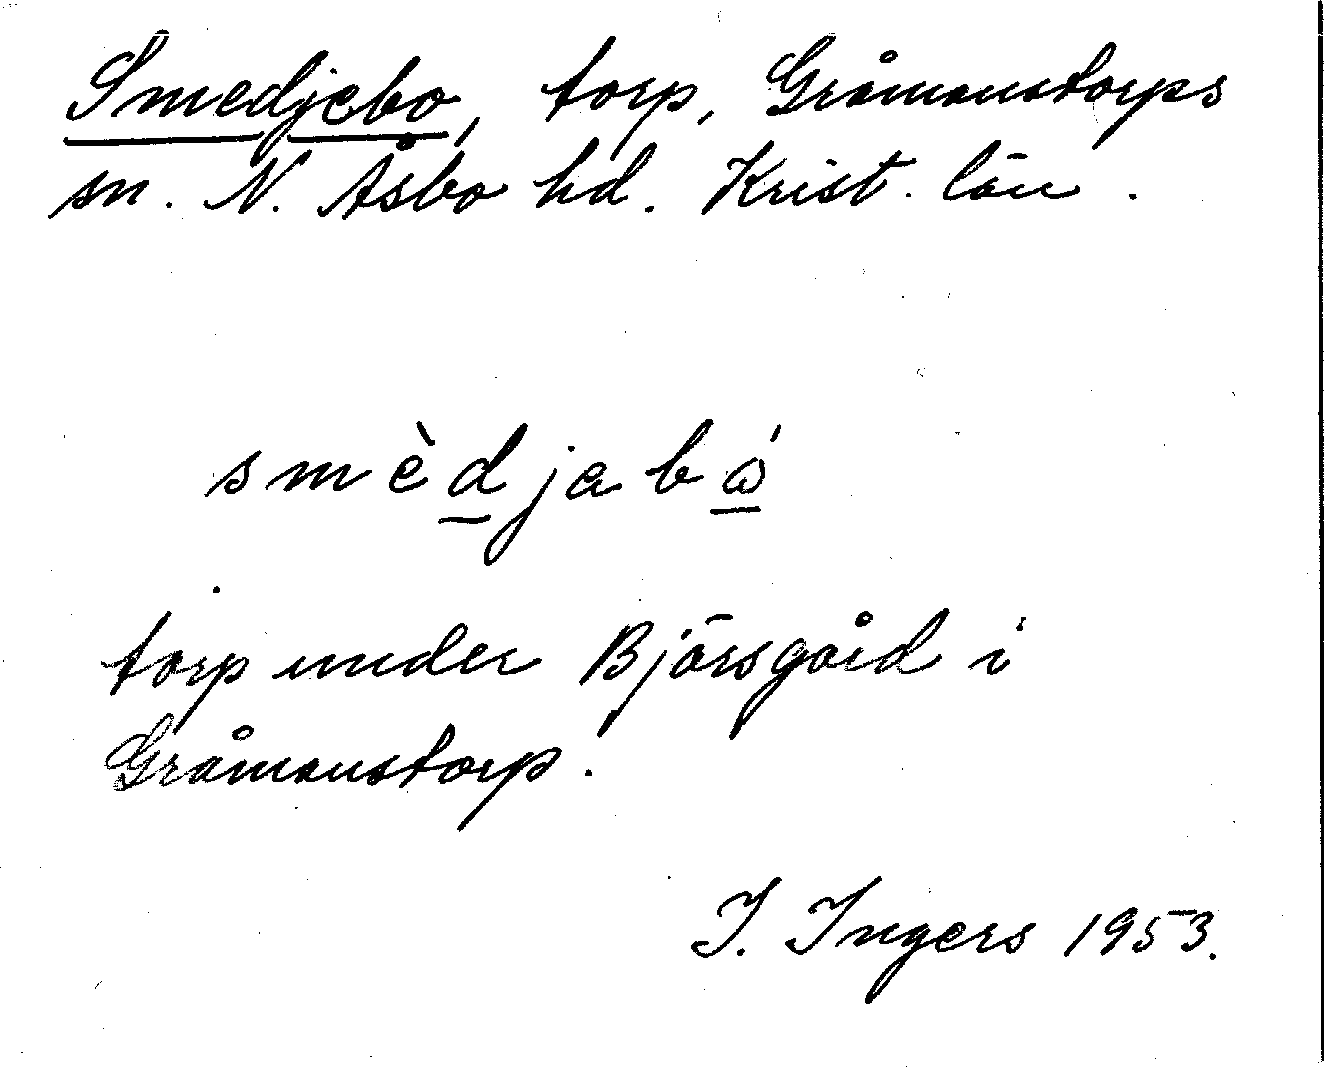 Smedjebo, torp, Gråmanstorps
sn. N. Åsbo hd. Krist. län.
smèdjabó
torp under Björsgård i
Gråmanstorp.
I. Ingers 1953.